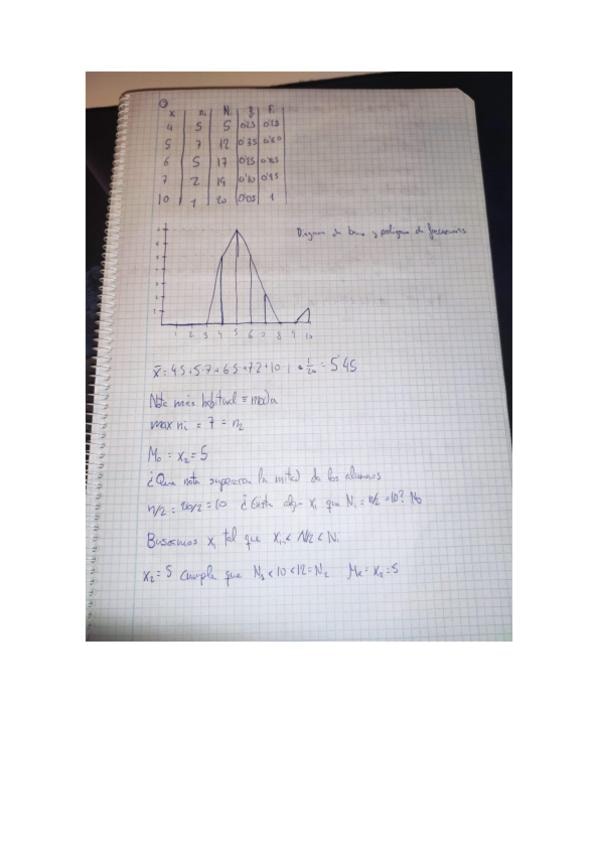 x ni Ni fi Fi
4 5 5 0'25 0'25
5 7 12 0'35 0'60
6 5 17 0'25 0'85
7 2 19 0'10 0'95
10 1 20 0'05 1
Diagrama de barras y polígono de frecuencias
1 2 3 4 5 6 7 8 9 10
x̄ = 4·5+5·7+6·5+7·2+10·1 · 1/20 = 5'45
Nota más habitual ≡ moda
max ni = 7 = n2
Mo = x2 = 5
¿Que nota superaron la mitad de los alumnos
n/2 = 20/2 = 10 ¿Existe algún xi que Ni = n/2 = 10? No
Buscamos xi tal que Xi-1 < N/2 < Ni
x2 = 5 cumple que N1 < 10 < 12 = N2 Me = x2 = 5